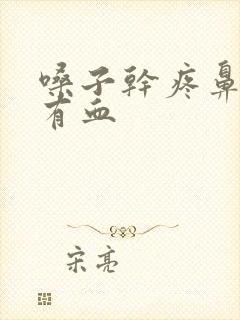 嗓子幹疼鼻
有血
宋亮